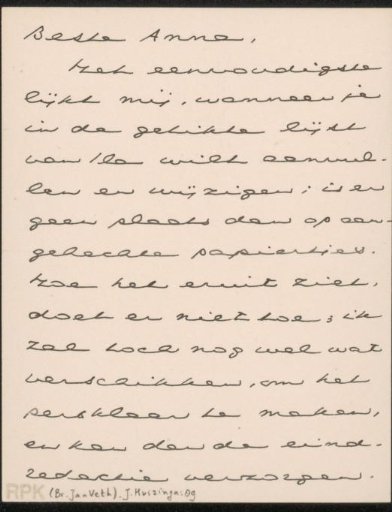 Beste Anna,
Het eenvoudigste
lijkt mij, wanneer je
in de getikte lijst
van 1a wilt aanvul-
len en wijzigen; is er
geen plaats dan op aan-
gehechte papiertjes.
Hoe het eruit ziet,
doet er niet toe; ik
zal toch nog wel wat
verschikken, om het
persklaar te maken,
en kan dan de eind-
redactie verzorgen.
RPK (Br. Jan Veth). J. Huizinga: 59